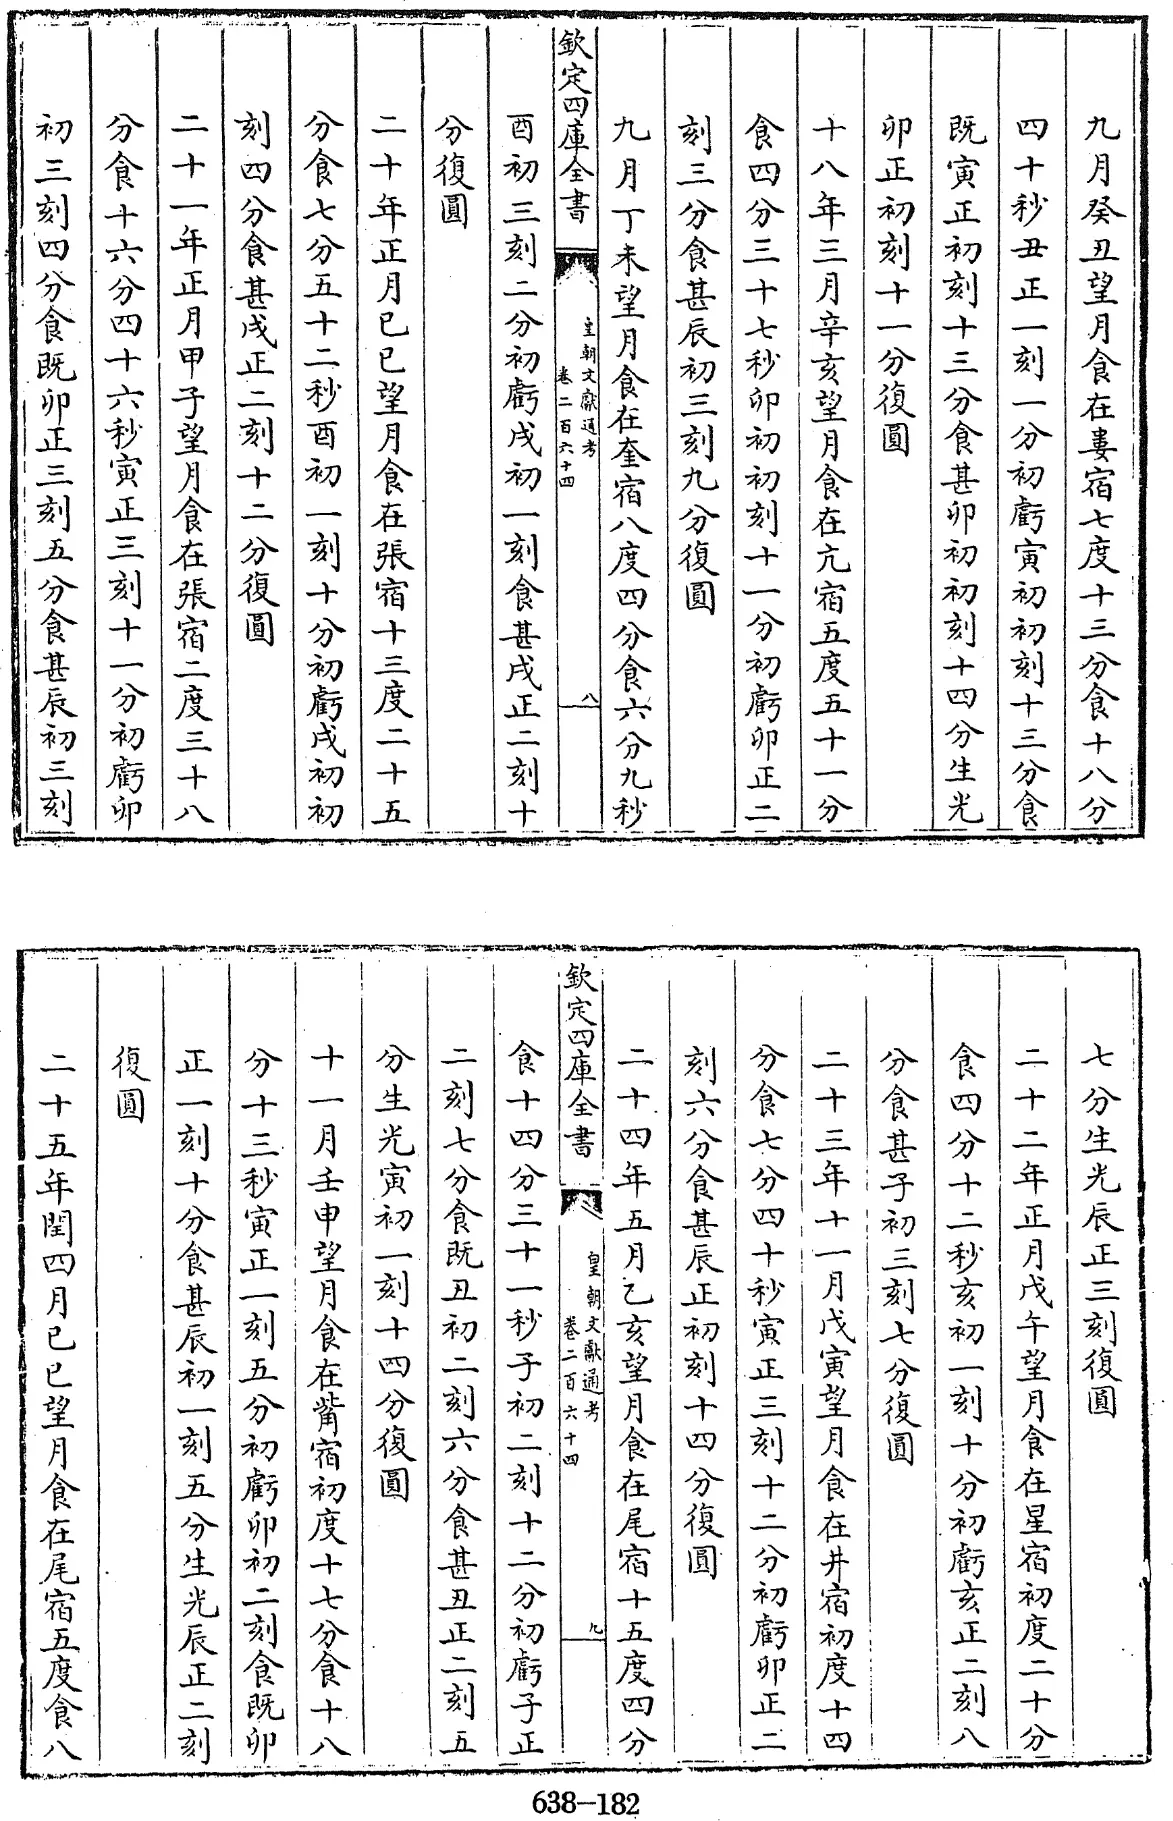 九月癸丑望月食在婁宿七度十三分食十八分
四十秒丑正一刻一分初虧寅初初刻十三分食
既寅正初刻十三分食甚卯初初刻十四分生光
卯正初刻十一分復圓
十八年三月辛亥望月食在亢宿五度五十一分
食四分三十七秒卯初初刻十一分初虧卯正二
刻三分食甚辰初三刻九分復圓
九月丁未望月食在奎宿八度四分食六分九秒
欽定四庫全書
皇朝文獻通考
卷二百六十四
八
酉初三刻二分初虧戌初一刻食甚戌正二刻十
分復圓
二十年正月已巳望月食在張宿十三度二十五
分食七分五十二秒酉初一刻十分初虧戌初初
刻四分食甚戌正二刻十二分復圓
二十一年正月甲子望月食在張宿二度三十八
分食十六分四十六秒寅正三刻十一分初虧卯
初三刻四分食既卯正三刻五分食甚辰初三刻
七分生光辰正三刻復圓
二十二年正月戊午望月食在星宿初度二十分
食四分十二秒亥初一刻十分初虧亥正二刻八
分食甚子初三刻七分復圓
二十三年十一月戊寅望月食在井宿初度十四
分食七分四十秒寅正三刻十二分初虧卯正二
刻六分食甚辰正初刻十四分復圓
二十四年五月乙亥望月食在尾宿十五度四分
欽定四庫全書
皇朝文獻通考
卷二百六十四
九
食十四分三十一秒子初二刻十二分初虧子正
二刻七分食既丑初二刻六分食甚丑正二刻五
分生光寅初一刻十四分復圓
十一月壬申望月食在觜宿初度十七分食十八
分十三秒寅正一刻五分初虧卯初二刻食既卯
正一刻十分食甚辰初一刻五分生光辰正二刻
復圓
二十五年閏四月已巳望月食在尾宿五度食八
638-182